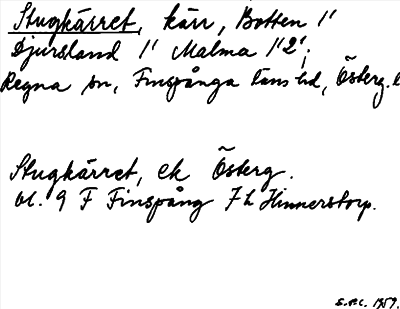 Stugkärret, kärr, Botten 1'
Djursland 1' Malma 1'2';
Regna sn, Finspånga läns hd, Österg. l
Stugkärret, ek Österg.
bl. 9 F Finspång 7 h Hinnerstorp.
1959.